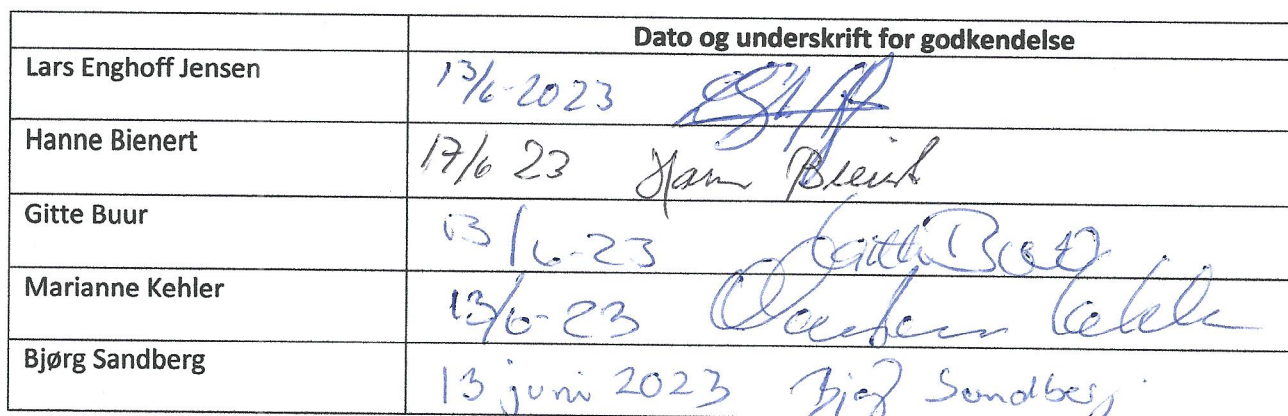 Dato og underskrift for godkendelse
Lars Enghoff Jensen 13/6-2023
Hanne Bienert 17/6 23 Hanne Bienert
Gitte Buur 13/6-23 Gitte Buur
Marianne Kehler 13/6-23 Marianne Kehler
Bjørg Sandberg 13 juni 2023 Bjørg Sandberg